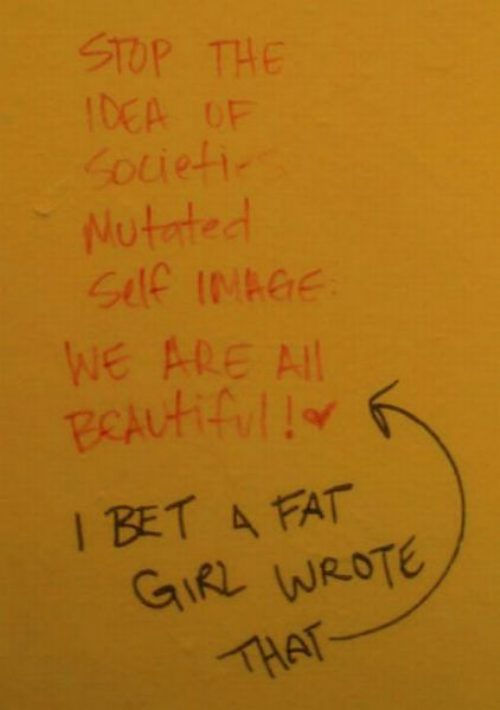 STOP THE
IDEA OF
Societi
Mutated
Self IMAGE.
WE ARE All
BEAutiful! ♥
I BET A FAT
GIRL WROTE
THAT